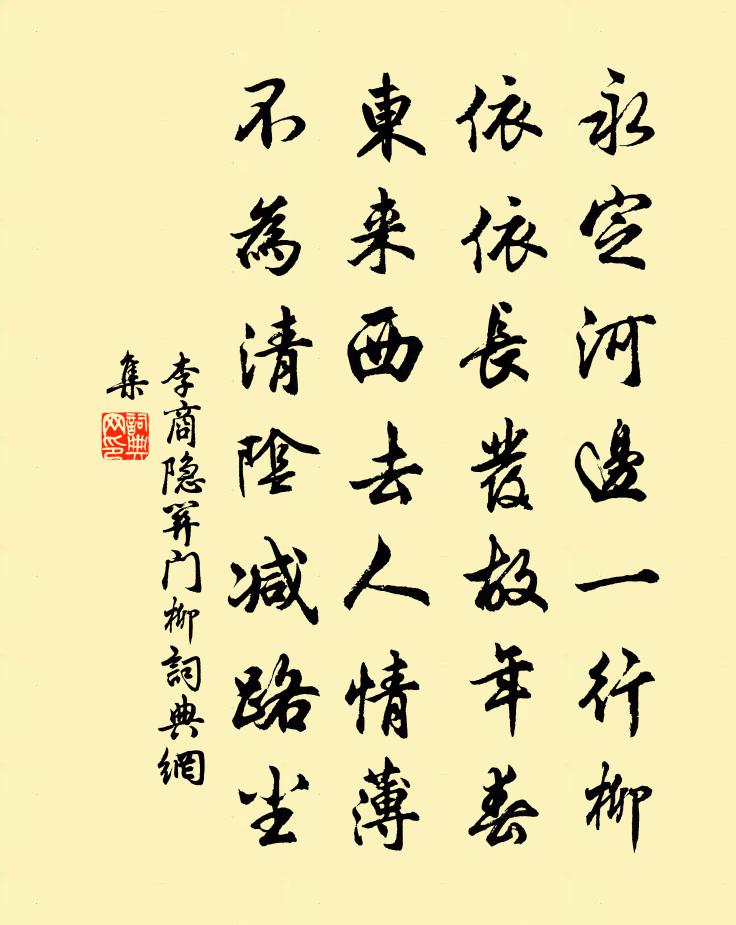 永定河邊一行柳
依依長發故年春
東来西去人情薄
不為清陰减路尘
李商隐関门柳詞典網
集
詞典
网印